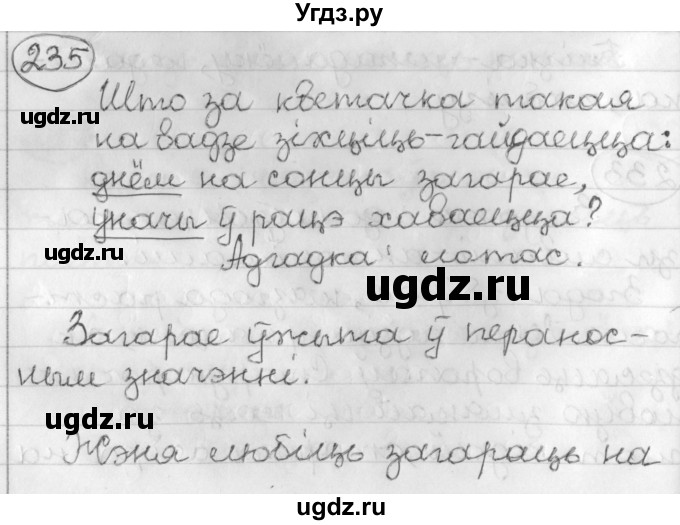 Угдз.ру
235
Што за кветачка такая
на вадзе зіхціць-гайдаецца:
днём на сонцы загарае,
уначы ў рацэ хаваецца?
Адгадка: лотас.
ugdz.ru
ugdz.ru
ugdz.ru
Загарае ўжыта ў перанос-
ным значэнні.
ugdz.ru
ugdz.ru
Жэня любіць загараць на
ugdz.ru
ugdz.ru